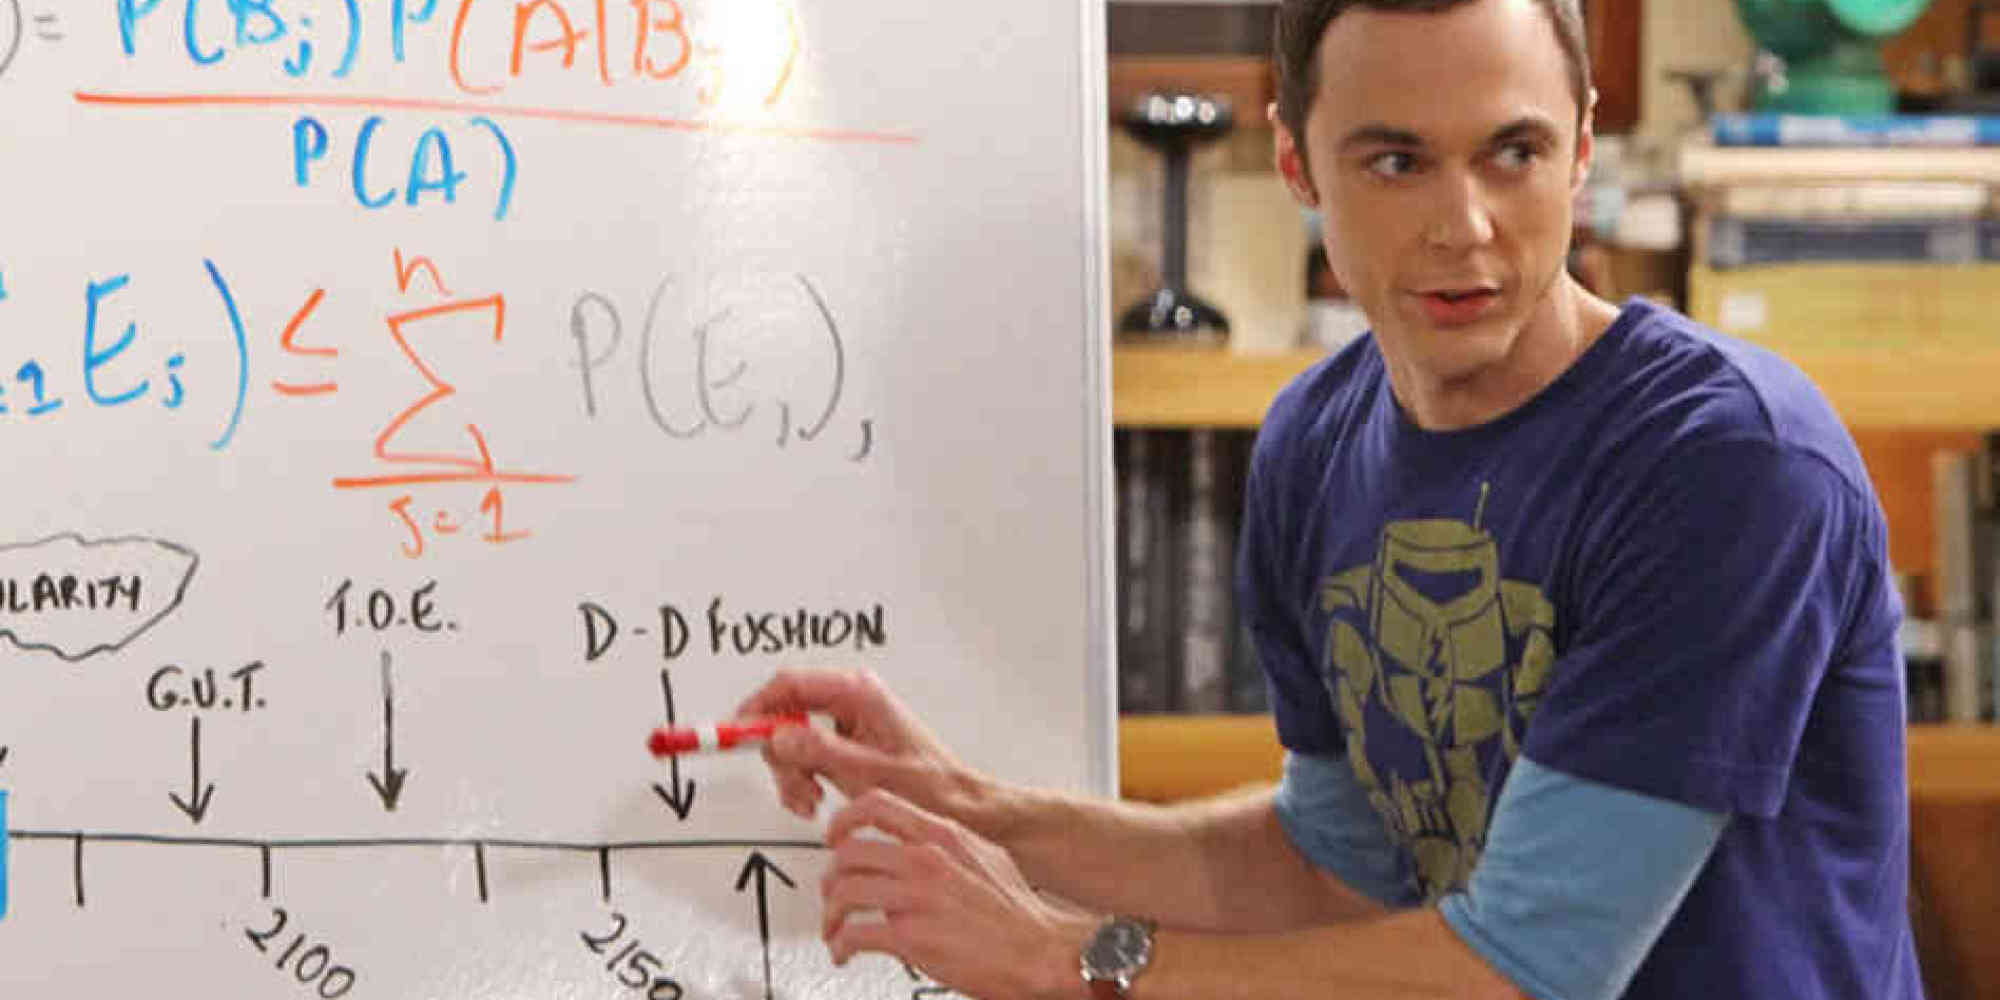 ) = P(Bj) P(A|Bj)
P(A)
n
1 Ej) ≤ ∑ P(Ej),
j=1
LARITY
T.O.E.
D-D FUSHION
G.U.T.
2100
2150